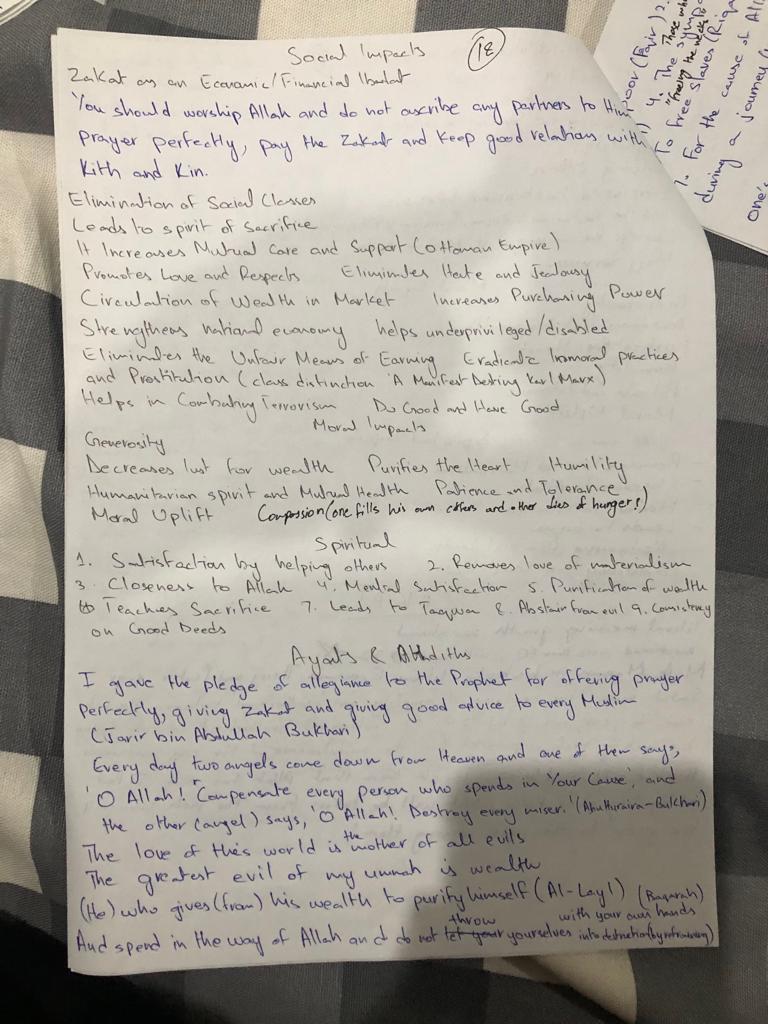 Social Impacts
18
Zakat as an Economic/Financial Ibadat
You should worship Allah and do not ascribe any partners to Him
prayer perfectly, pay the Zakat and keep good relations with
Kith and Kin.
Elimination of Social Classes
Leads to spirit of sacrifice
It Increases Mutual Care and Support (Ottoman Empire)
Promotes Love and Respects Eliminates Hate and Jealousy
Circulation of Wealth in Market Increases Purchasing Power
Strengthens national economy helps underprivileged/disabled
Eliminates the Unfair Means of Earning Eradicate Immoral practices
and Prostitution (class distinction 'A Manifest Destiny Karl Marx)
Helps in Combating Terrorism Do Good and Have Good
Moral Impacts
Generosity
Decreases lust for wealth Purifies the Heart Humility
Humanitarian spirit and Mutual Health Patience and Tolerance
Moral Uplift Compassion (one fills his own coffers and other dies of hunger!)
Spiritual
1. Satisfaction by helping others 2. Removes love of materialism
3. Closeness to Allah 4. Mental Satisfaction 5. Purification of wealth
6 Teaches Sacrifice 7. Leads to Taqwa 8. Abstain from evil 9. Consistency
on Good Deeds
Ayats & Ahadiths
I gave the pledge of allegiance to the Prophet for offering prayer
perfectly, giving Zakat and giving good advice to every Muslim
(Jarir bin Abdullah Bukhari)
Every day two angels come down from Heaven and one of them says,
'O Allah! Compensate every person who spends in Your Cause', and
the other (angel) says, 'O Allah! Destroy every miser.' (Abu Huraira-Bukhari)
The love of this world is the mother of all evils
The greatest evil of my ummah is wealth
(He) who gives (from) his wealth to purify himself (Al-Layl) (Baqarah)
And spend in the way of Allah and do not throw yourselves into destruction (by refraining) with your own hands
poor (Faqir) 2.
4. The
Those who
"Freeing the necks
To free slaves (Riqa
7. For the cause of All
during a journey
one's